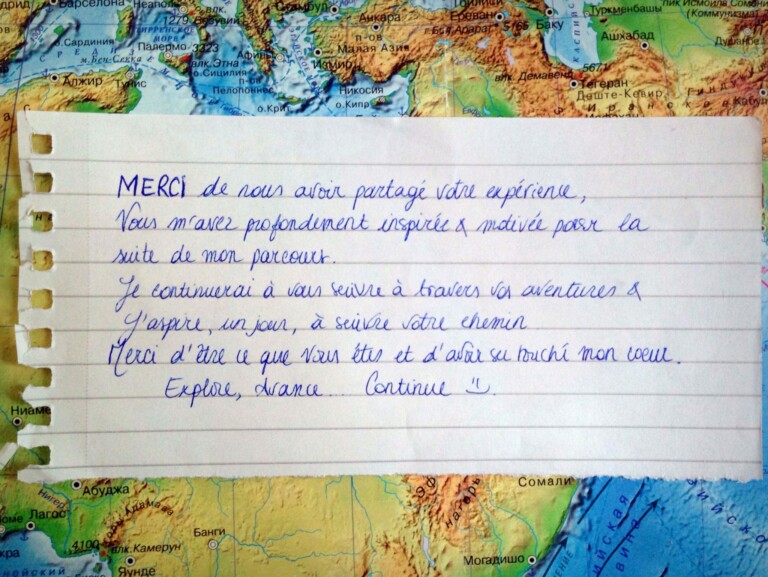 Барселона
Неаполь
1279
Анкара
Ереван
5165
Баку
Туркменбашы
пик Исмоила Сомони
(Коммунизма)
о.Сардиния
Палермо
3323
п-ов
Малая Азия
Ашхабад
м.Бен-Секка
влк.Этна
о.Сицилия
Измир
влк. Демавенд
5671
Алжир
Тунис
п-ов
Пелопоннес
Никосия
Тегеран
Деште-Кевир
о.Крит
о.Кипр
MERCI de nous avoir partagé votre expérience,
Vous m'avez profondément inspirée & motivée pour la
suite de mon parcours.
Je continuerai à vous suivre à travers vos aventures &
J'aspire, un jour, à suivre votre chemin
Merci d'être ce que vous êtes et d'avoir su touché mon coeur.
Explore, Avance... Continue
Ниаме
Абуджа
Сомали
Лагос
Банги
4100
влк.Камерун
Яунде
Могадишо